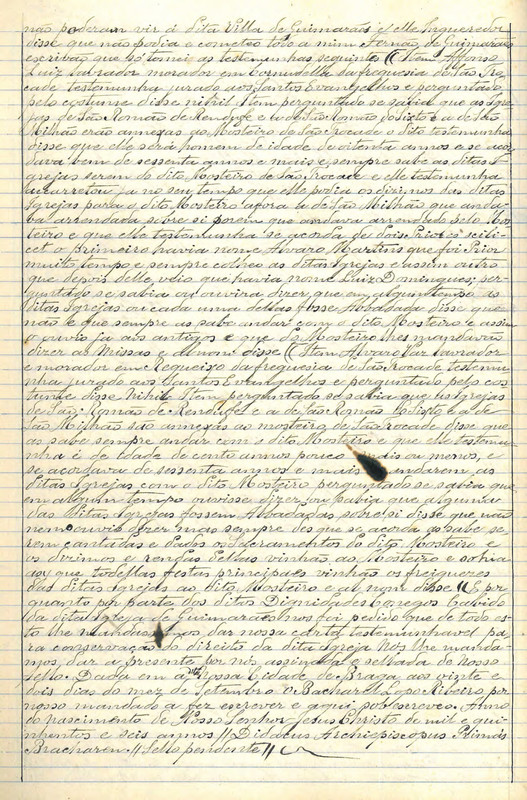 não poderam vir á dita Villa de Guimarães e elle Inqueredor
disse que não podia e cometeo todo a mim Fernão de Guimarães
escrivão que so tomei as testemunhas seguintes // Item Affonso
Luiz lavrador morador em da freguesia de São Tro-
cade testemunha jurado aos Santos Evangelhos e perguntado
pelo costume disse nihil Item perguntado se sabia que as Igre-
jas de São Romão de Rendufe e a de São Romão do e a de São
Milhão erão annexas ao Mosteiro de São Trocade o dito testemunha
disse que elle será homem de idade de oitenta annos e se acor-
dava bem de sessenta annos e mais e sempre sabe as ditas I-
grejas serem do dito Mosteiro de São Trocade e elle testemunha
acarretou ja no seu tempo que elle podia os dizimos das ditas
Igrejas para o dito Mosteiro agora a de São Milhão que anda-
va arrendada sobre si porem que andava arrendada pelo Mos-
teiro e que elle testemunha se acorda de dois Priores scili-
cet o primeiro havia nome Alvaro Martins que foi Prior
muito tempo e sempre colheo as ditas Igrejas e assim outro
que depois delle veio que havia nome Luiz Domingues; per-
guntado se sabia ou ouvira dizer que em algum tempo as
ditas Igrejas ou cada uma dellas fosse Abbadada disse que
não e que sempre as sabe andar com o dito Mosteiro e assim
o ouvio ja aos antigos e que do Mosteiro lhes mandavão
dizer as Missas e al nom disse // Item Alvaro Vaz lavrador
e morador em Requeixo da freguesia de São Trocade testemu-
nha jurado aos Santos Evangelhos e perguntado pelo cos-
tume disse nihil Item perguntado se sabia que as Igrejas
de São Romão de Rendufe e a de São Romão do e a de
São Milhão são annexas ao mosteiro de São Trocade disse que
as sabe sempre andar com o dito Mosteiro e que elle testemu-
nha é de idade de cento annos pouco mais ou menos, e
se acordava de sessenta annos e mais andarem as
ditas Igrejas com o dito Mosteiro perguntado se sabia que
em algum tempo ouvisse dizer ou sabia que alguma
das ditas Igrejas fossem Abbadadas sobre si disse que não
nem ouvio dizer mas sempre des que se acorda as sabe se-
rem cantadas e dados os Sacramentos do dito Mosteiro e
os dizimos e rendas dellas vinhão ao Mosteiro e sohia
aos que todellas festas principaes vinhão os freigueses
das ditas Igrejas ao dito Mosteiro e al nom disse // E por
quanto por parte dos ditos Dignidades Conegos Cabido
da dita Igreja de Guimarães nos foi pedido que de todo es-
to lhe mandassemos dar nossa carta testemunhavel pa-
ra conservação do direito da dita Igreja Nós lhe manda-
mos dar a presente por nós assinada e sellada do nosso
sello. Dada em a nossa Cidade de Braga aos vinte e
dois dias do mez de Setembro O Bacharel Lopo Ribeiro por
nosso mandado a fez escrever e aqui sobscreveo. Anno
do nascimento de Nosso Senhor Jesus Christo de mil e qui-
nhentos e seis annos // Didacus Archiepiscopus Primas
Bracharen. // Sello pendente //